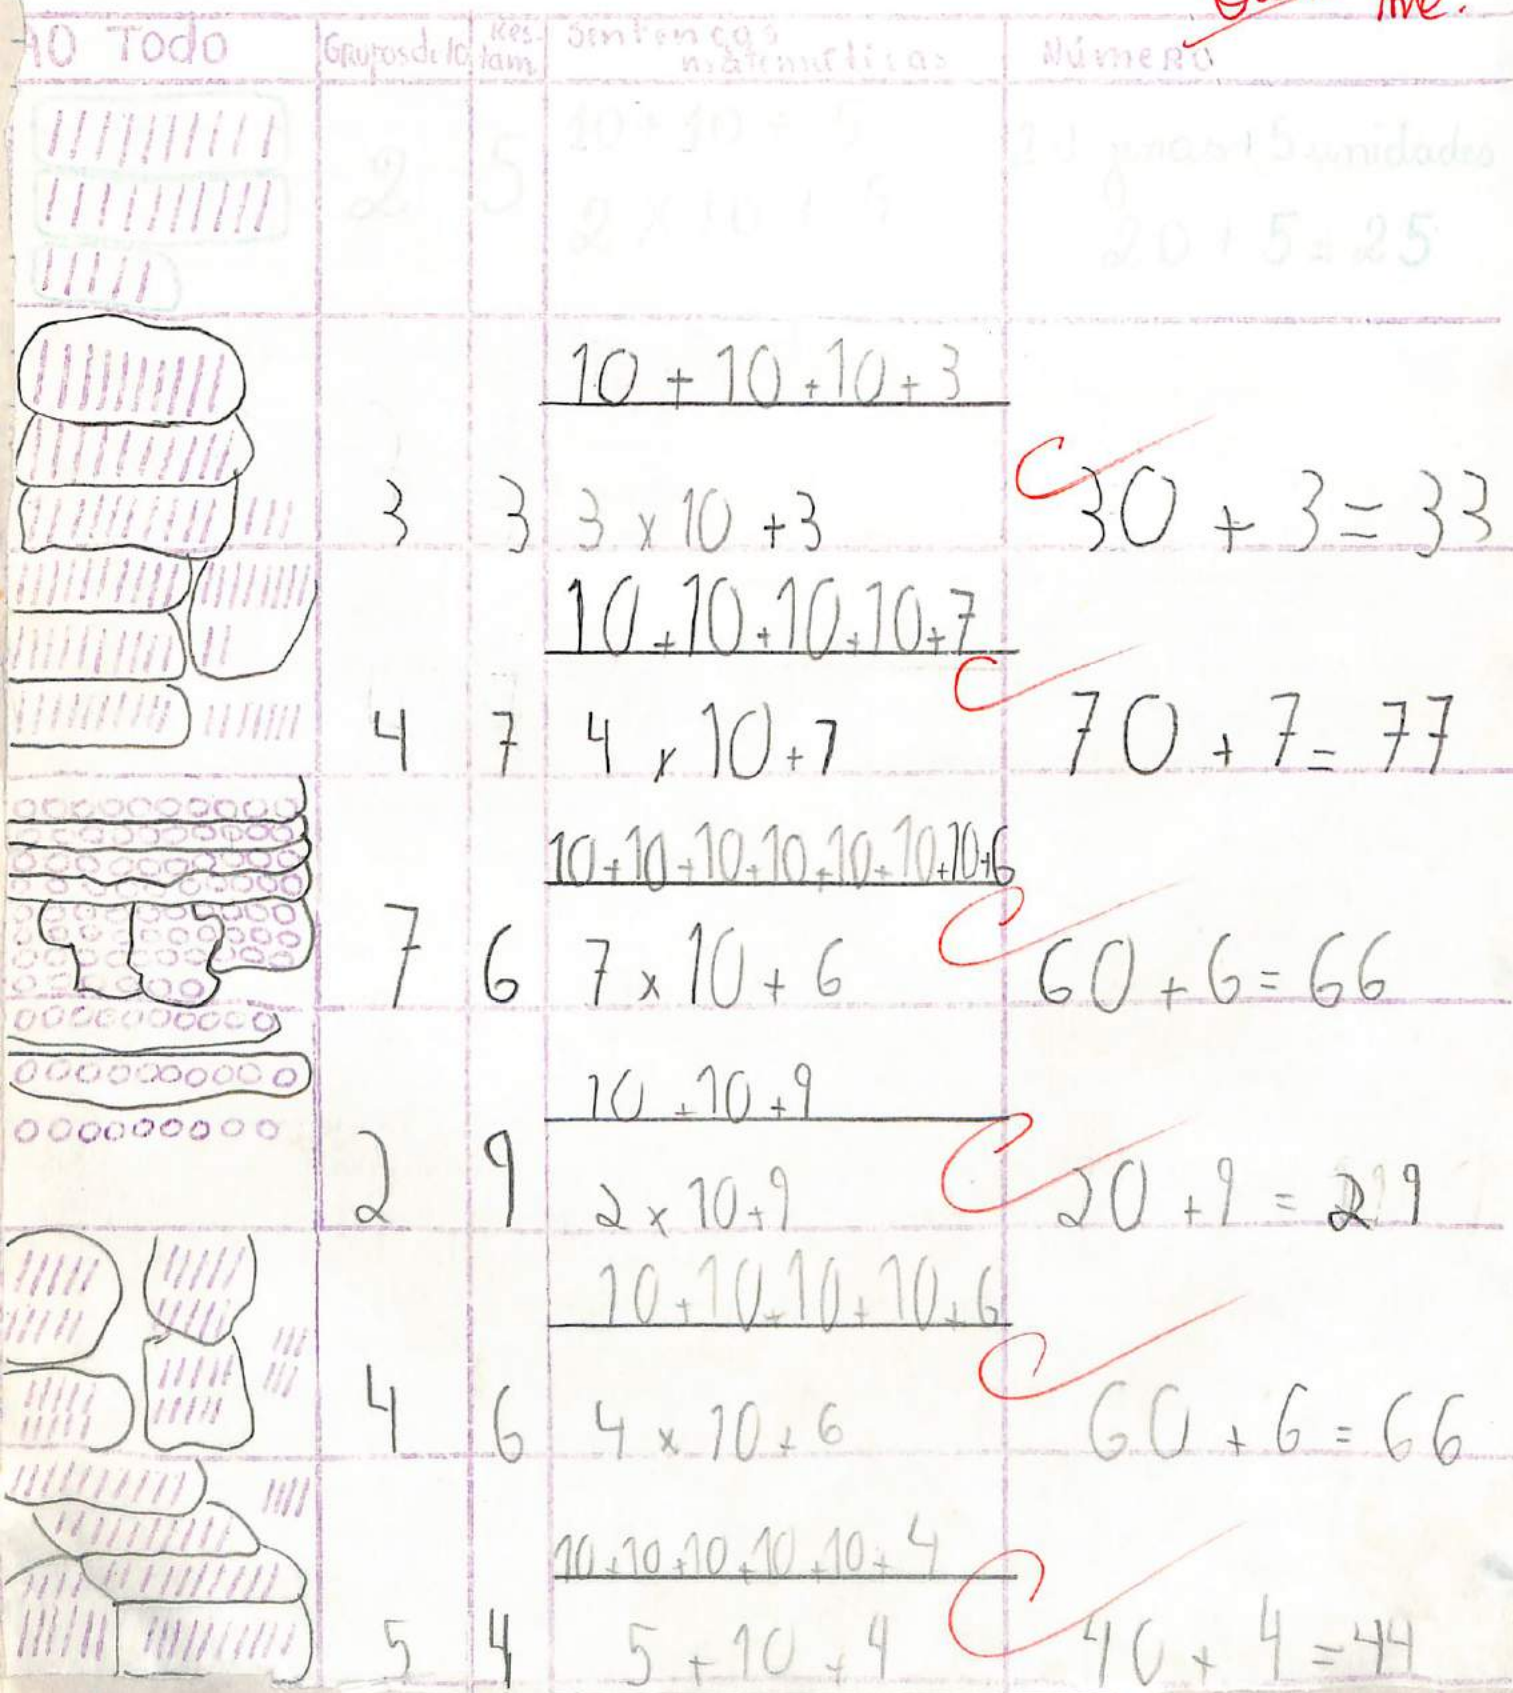 AO Todo Grupos de 10 Restam Sentenças matemáticas Número
2 5 10 + 10 + 5
2 x 10 + 5
5 unidades
20 + 5 = 25
10 + 10 + 10 + 3
3 3 3 x 10 + 3 30 + 3 = 33
10 + 10 + 10 + 10 + 7
4 7 4 x 10 + 7 70 + 7 = 77
10 + 10 + 10 + 10 + 10 + 10 + 10 + 6
7 6 7 x 10 + 6 60 + 6 = 66
10 + 10 + 9
2 9 2 x 10 + 9 20 + 9 = 29
10 + 10 + 10 + 10 + 6
4 6 4 x 10 + 6 60 + 6 = 66
10 + 10 + 10 + 10 + 10 + 4
5 4 5 + 10 + 4 40 + 4 = 44